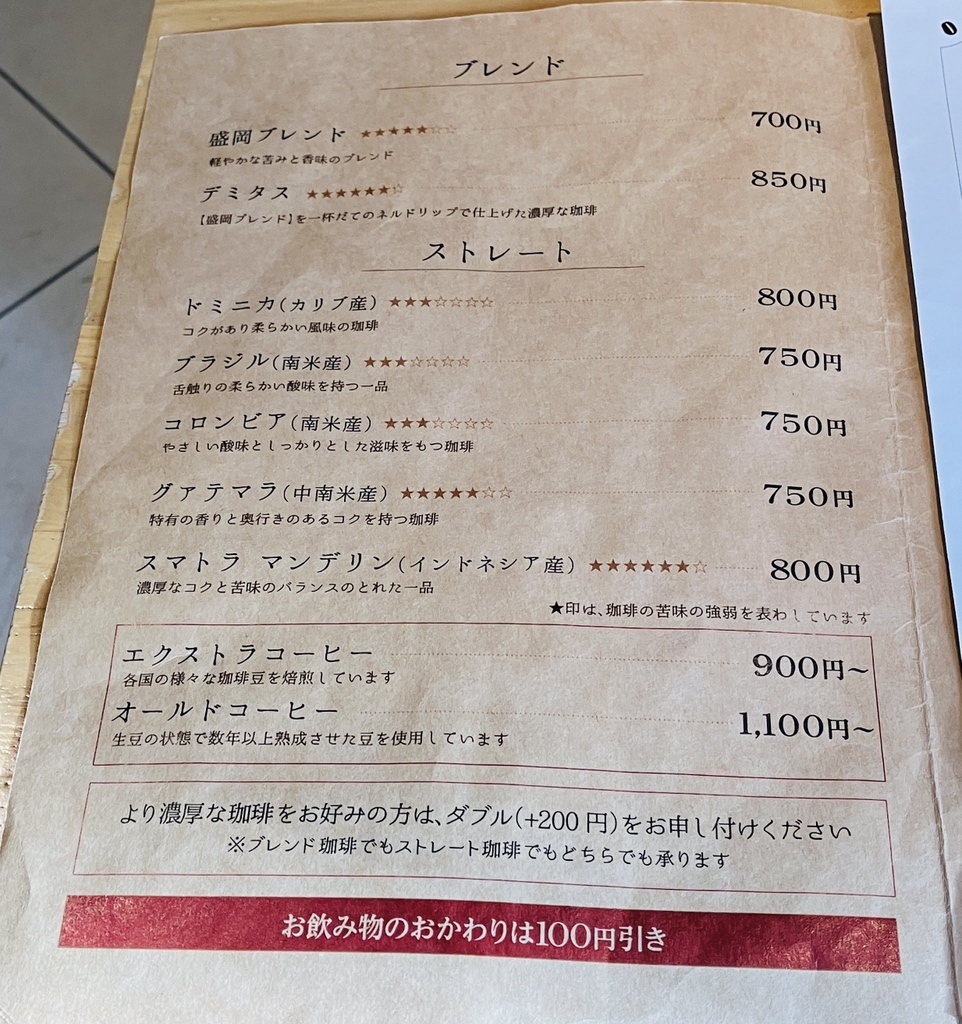 ブレンド
盛岡ブレンド ★★★★★☆☆ 700円
軽やかな苦みと香味のブレンド
デミタス ★★★★★★☆ 850円
【盛岡ブレンド】を一杯だてのネルドリップで仕上げた濃厚な珈琲
ストレート
ドミニカ(カリブ産) ★★★☆☆☆☆ 800円
コクがあり柔らかい風味の珈琲
ブラジル(南米産) ★★★☆☆☆☆ 750円
舌触りの柔らかい酸味を持つ一品
コロンビア(南米産) ★★★☆☆☆☆ 750円
やさしい酸味としっかりとした滋味をもつ珈琲
グァテマラ(中南米産) ★★★★★☆☆ 750円
特有の香りと奥行きのあるコクを持つ珈琲
スマトラ マンデリン(インドネシア産) ★★★★★★☆ 800円
濃厚なコクと苦味のバランスのとれた一品
★印は、珈琲の苦味の強弱を表わしています
エクストラコーヒー 900円〜
各国の様々な珈琲豆を焙煎しています
オールドコーヒー 1,100円〜
生豆の状態で数年以上熟成させた豆を使用しています
より濃厚な珈琲をお好みの方は、ダブル(+200円)をお申し付けください
※ブレンド珈琲でもストレート珈琲でもどちらでも承ります
お飲み物のおかわりは100円引き